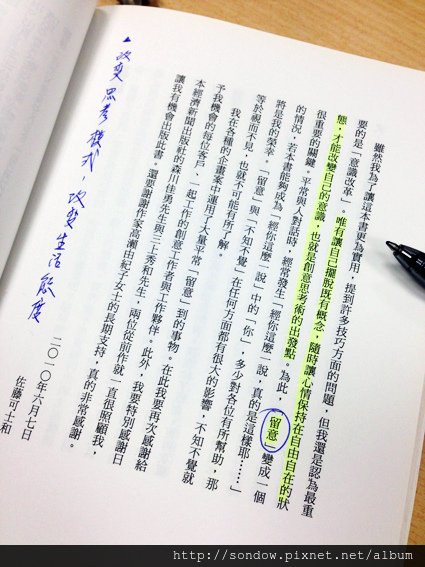 雖然我為了讓這本書更為實用，提到許多技巧方面的問題，但我還是認為最重
要的是「意識改革」。唯有讓自己擺脫既有概念，隨時讓心情保持在自由自在的狀
態，才能改變自己的意識，也就是創意思考術的出發點。為此，「留意」變成一個
很重要的關鍵。平常與人對話時，經常發生「經你這麼一說，真的是這樣耶……」
的情況，若本書能夠成為「經你這麼一說」中的「你」，多少對各位有所幫助，那
將是我的榮幸。「留意」與「不知不覺」在任何方面都有很大的影響，不知不覺就
等於視而不見，也就不可能有所了解。
我在各種的企畫案中運用了大量平常「留意」到的事物。在此我要再次感謝給
予我機會的每位客戶、一起工作的創意工作者與工作夥伴。此外，我要特別感謝日
本經濟新聞出版社的森川佳勇先生與三上秀和先生，兩位從前作就一直很照顧我，
讓我有機會出版此書。還要謝謝作家高瀨由紀子女士的長期支持，真的非常感謝。
二〇一〇年六月七日
佐藤可士和
▲改變思考模式，改變生活態度
http://sondow.pixnet.net/album